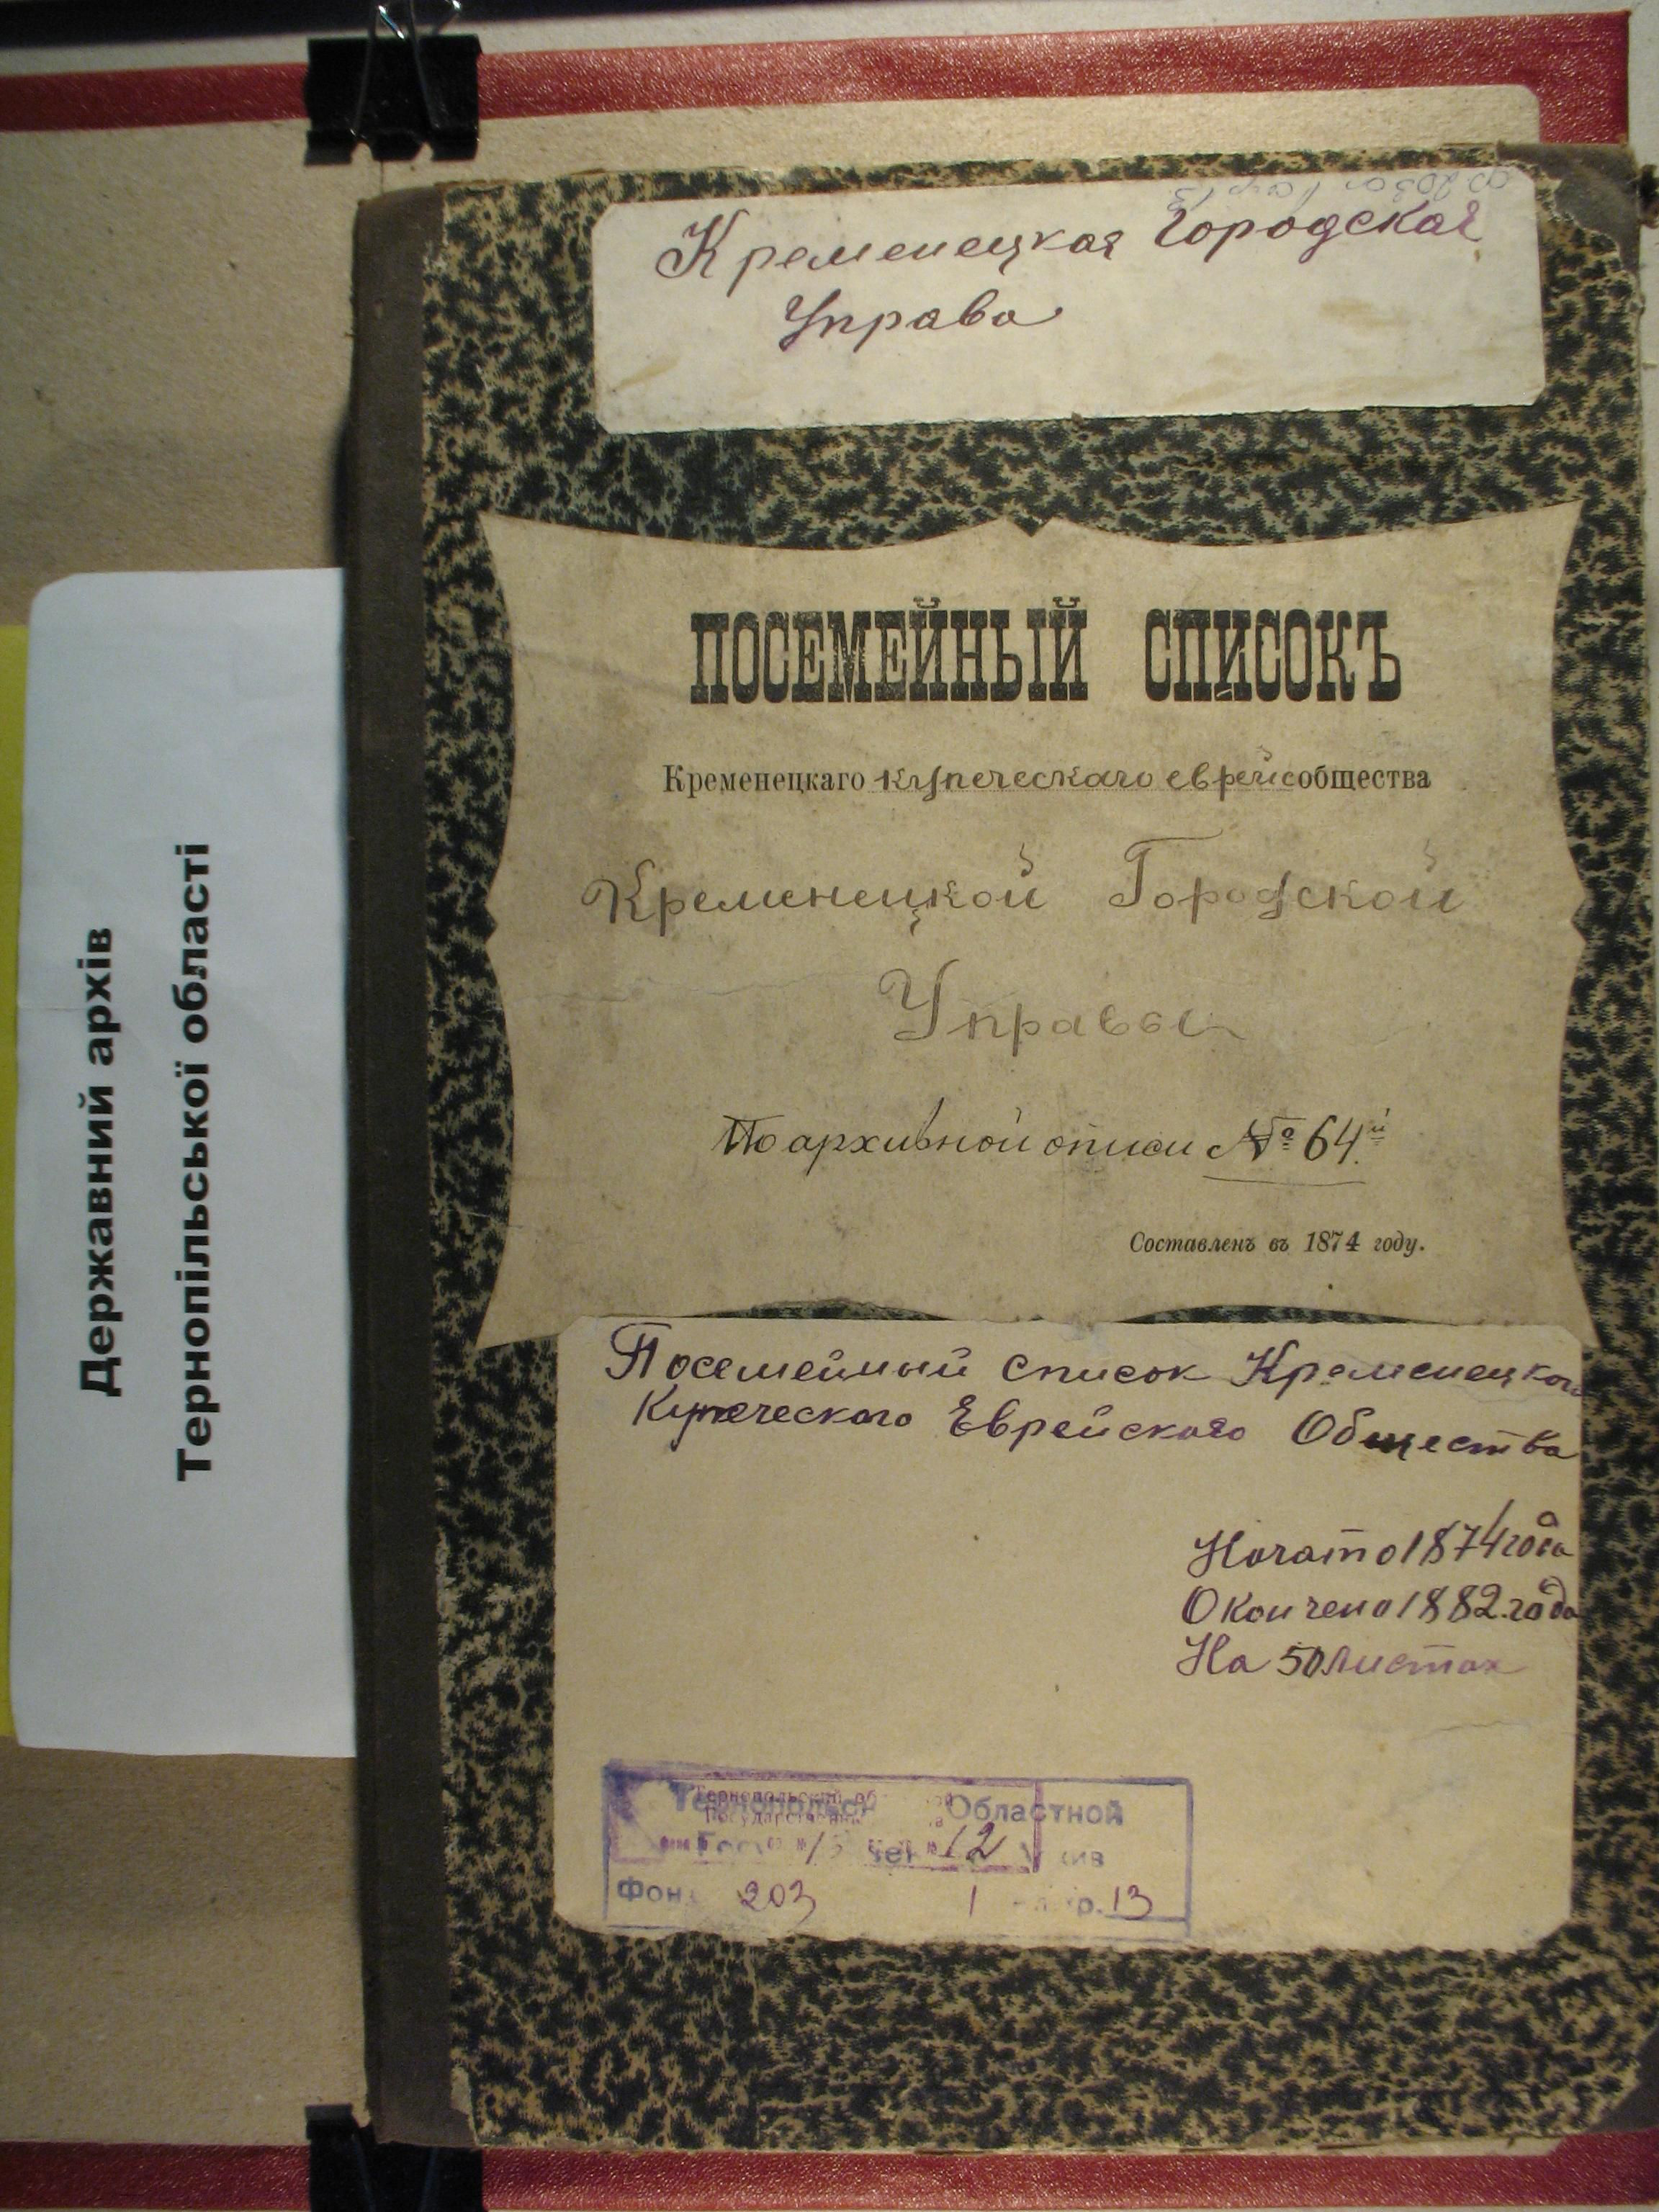 Державний архів
Тернопільської області
Кременецкая Городская
Управа
ПОСЕМЕЙНЫЙ СПИСОКЪ
Кременецкаго купеческаго еврейс общества
Кременецкой Городской
Управы
По архивной описи № 64й
Составленъ въ 1874 году.
Посемейный список Кременецкого
Купеческого Еврейского Общества
Начато 1874 года
Окончено 1882 года
На 50 листах
Областной
12
Фон 203 1 р. 13